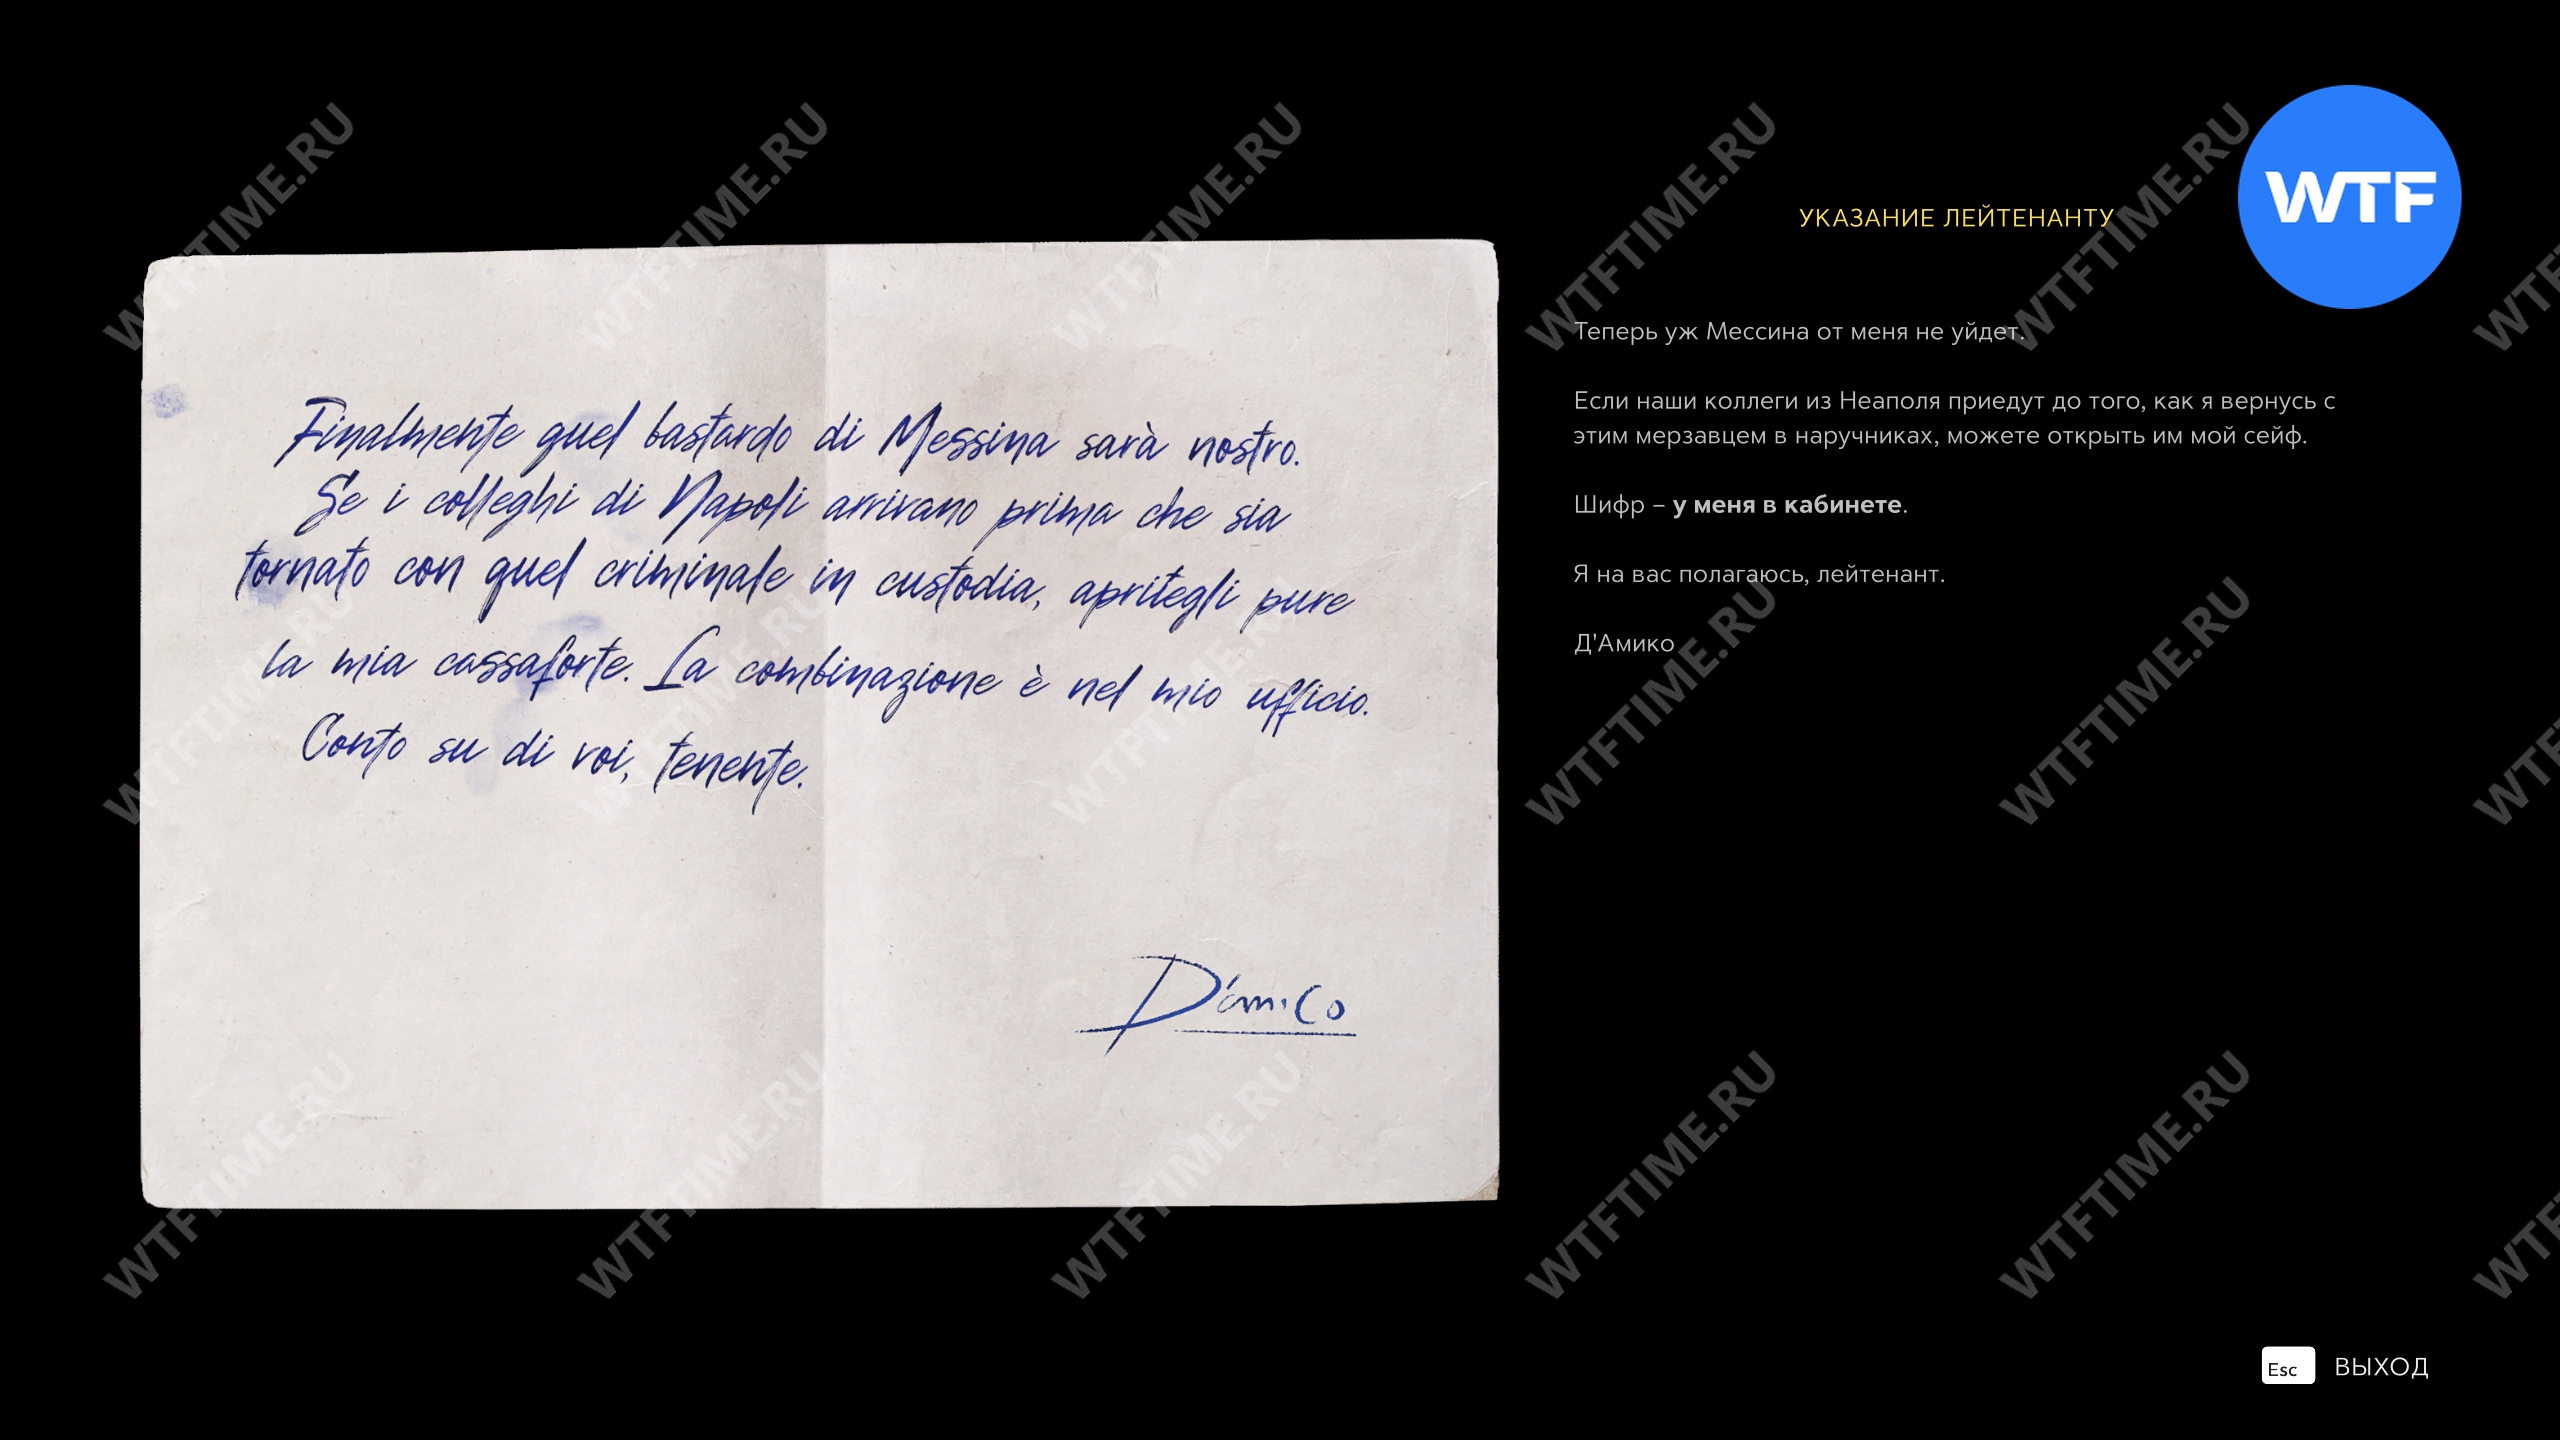 WTF
УКАЗАНИЕ ЛЕЙТЕНАНТУ
Finalmente quel bastardo di Messina sarà nostro.
Se i colleghi di Napoli arrivano prima che sia
tornato con quel criminale in custodia, apritegli pure
la mia cassaforte. La combinazione è nel mio ufficio.
Conto su di voi, tenente.
D'amico
Теперь уж Мессина от меня не уйдет.
Если наши коллеги из Неаполя приедут до того, как я вернусь с
этим мерзавцем в наручниках, можете открыть им мой сейф.
Шифр – у меня в кабинете.
Я на вас полагаюсь, лейтенант.
Д'Амико
Esc ВЫХОД
WTFTIME.RU